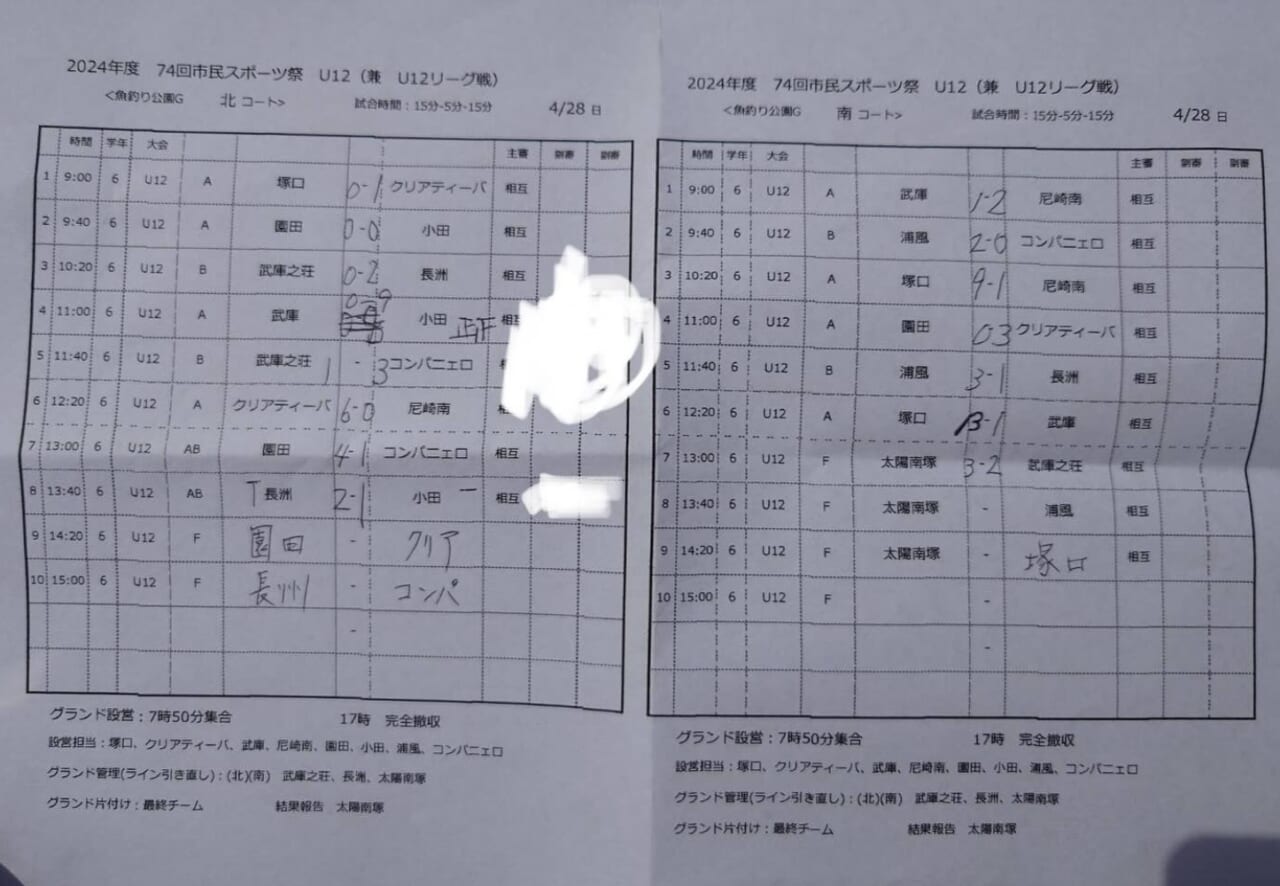 2024年度 74回市民スポーツ祭 U12（兼 U12リーグ戦）
<魚釣り公園G 北 コート> 試合時間：15分-5分-15分 4/28 日
時間 学年 大会 主審 副審 副審
1 9:00 6 U12 A 塚口 0-1 クリアティーバ 相互
2 9:40 6 U12 A 園田 0-0 小田 相互
3 10:20 6 U12 B 武庫之荘 0-2 長洲 相互
4 11:00 6 U12 A 武庫 0-9 小田 正正 相互
5 11:40 6 U12 B 武庫之荘 1 - 3 コンパニェロ
6 12:20 6 U12 A クリアティーバ 6-0 尼崎南
7 13:00 6 U12 AB 園田 4-1 コンパニェロ 相互
8 13:40 6 U12 AB T 長洲 2-1 小田 一 相互
9 14:20 6 U12 F 園田 - クリア
10 15:00 6 U12 F 長州 - コンパ
-
グランド設営：7時50分集合 17時 完全撤収
設営担当：塚口、クリアティーバ、武庫、尼崎南、園田、小田、浦風、コンパニェロ
グランド管理(ライン引き直し)：(北)(南) 武庫之荘、長洲、太陽南塚
グランド片付け：最終チーム 結果報告 太陽南塚
2024年度 74回市民スポーツ祭 U12（兼 U12リーグ戦）
<魚釣り公園G 南 コート> 試合時間：15分-5分-15分 4/28 日
時間 学年 大会 主審 副審 副審
1 9:00 6 U12 A 武庫 1-2 尼崎南 相互
2 9:40 6 U12 B 浦風 2-0 コンパニェロ 相互
3 10:20 6 U12 A 塚口 9-1 尼崎南 相互
4 11:00 6 U12 A 園田 03 クリアティーバ 相互
5 11:40 6 U12 B 浦風 3-1 長洲 相互
6 12:20 6 U12 A 塚口 -1 武庫 相互
7 13:00 6 U12 F 太陽南塚 3-2 武庫之荘 相互
8 13:40 6 U12 F 太陽南塚 - 浦風 相互
9 14:20 6 U12 F 太陽南塚 - 塚口 相互
10 15:00 6 U12 F -
-
グランド設営：7時50分集合 17時 完全撤収
設営担当：塚口、クリアティーバ、武庫、尼崎南、園田、小田、浦風、コンパニェロ
グランド管理(ライン引き直し)：(北)(南) 武庫之荘、長洲、太陽南塚
グランド片付け：最終チーム 結果報告 太陽南塚